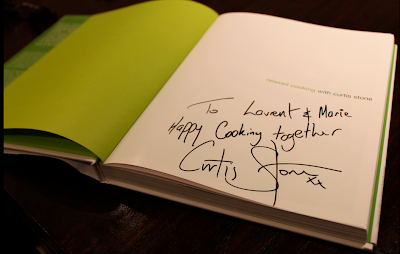 relaxed cooking with curtis stone
To Laurent & Marie
Happy Cooking together
Curtis Stone
xx